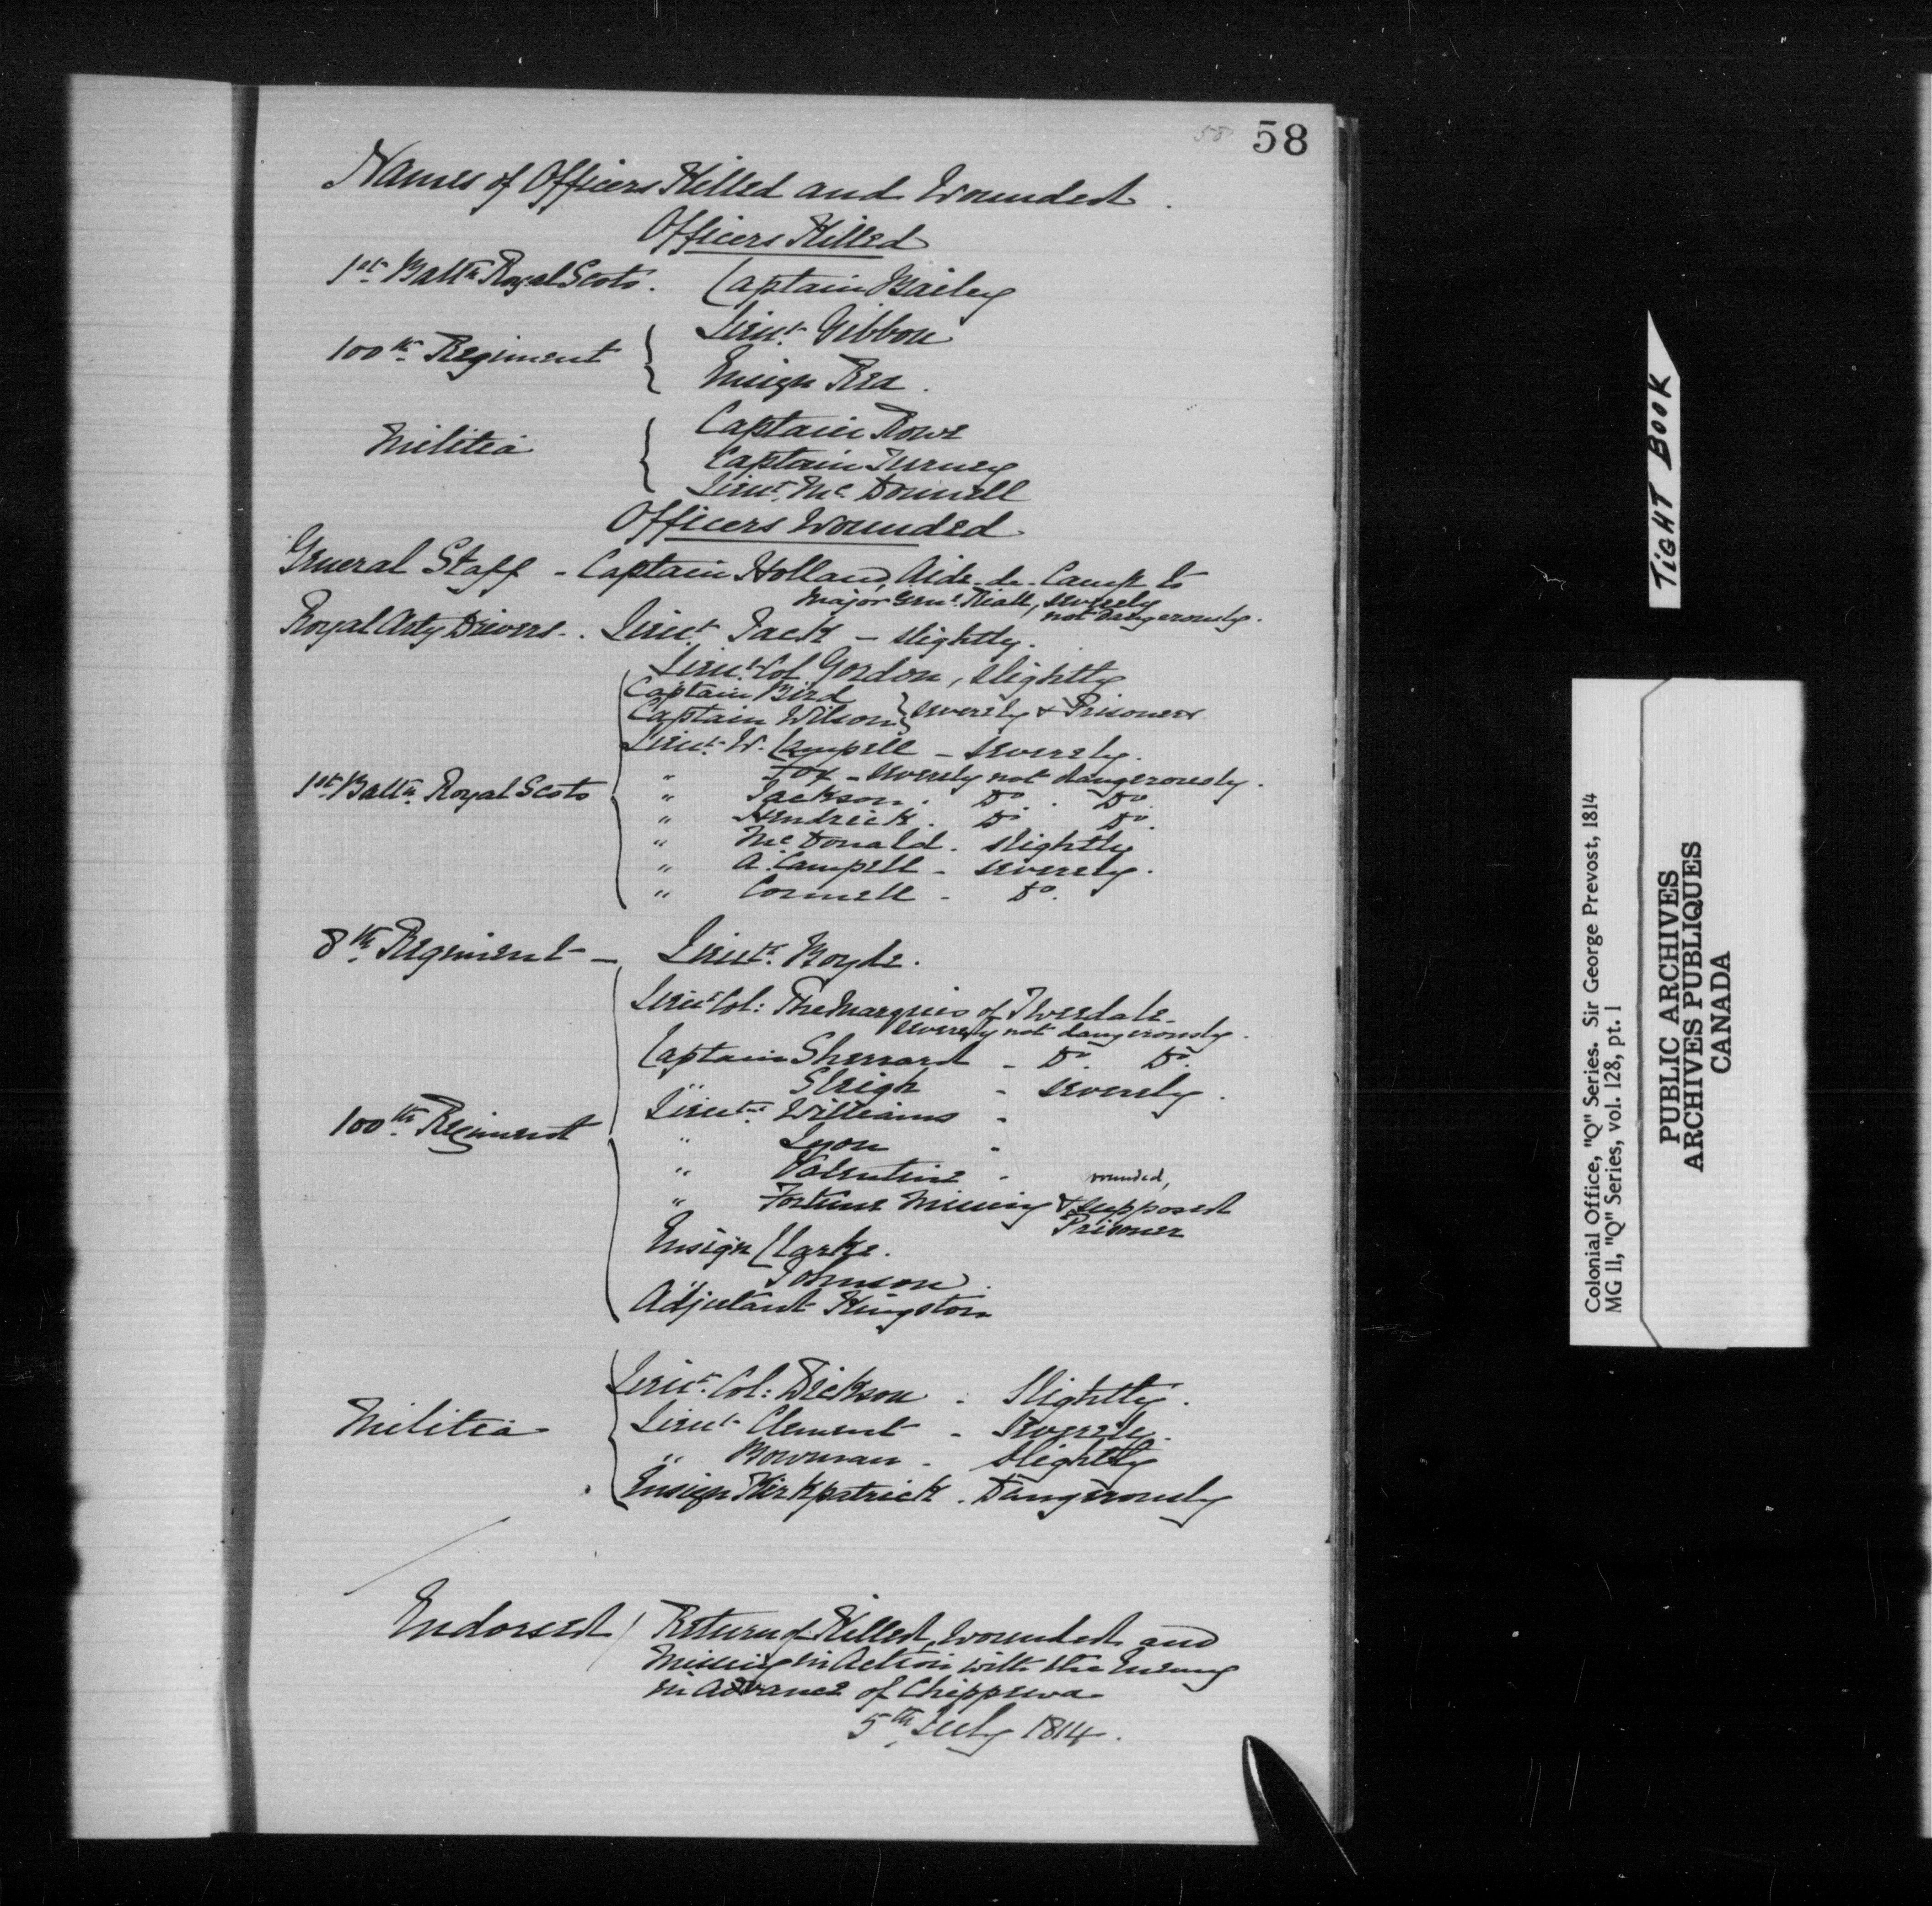 58 58
Names of Officers Killed and Wounded.
Officers Killed
1st Battn Royal Scots. Captain Bailey
100th Regiment { Lieut. Gibbon
Ensign Rea.
Militia { Captain Rowe
Captain Turney
Lieut. McDonnell
Officers Wounded
General Staff - Captain Holland, Aide-de-Camp to
Major Genl. Riall, severely
not dangerously.
Royal Arty Drivers - Lieut. Jack - slightly.
1st Battn Royal Scots { Lieut. Col. Gordon, slightly
Captain Bird
Captain Wilson } severely & Prisoners
Lieut. W. Campell - severely.
" Fox - severely not dangerously.
" Jackson. Do. Do.
" Hendrick. Do. Do.
" McDonald. slightly
" A. Campell - severely.
" Connell - Do.
8th Regiment - Lieut. Boyde.
100th Regiment { Lieut. Col: The Marquis of Tweedale
severely not dangerously.
Captain Sherrard - Do. Do.
" Sleigh - severely.
Lieuts. Williams -
" Lyon -
" Valentine -
wounded,
" Fortune Missing & supposed
Prisoner
Ensign Clarke.
" Johnson.
Adjutant Kingston
Militia { Lieut. Col: Dickson - Slightly.
Lieut. Clement - Severely.
" Bowman - Slightly
Ensign Kirkpatrick. Dangerously
Endorsed / Return of Killed, Wounded and
Missing in Action with the Enemy
in advance of Chippewa
5th July 1814.
TIGHT BOOK
Colonial Office, "Q" Series. Sir George Prevost, 1814
MG 11, "Q" Series, vol. 128, pt. 1
PUBLIC ARCHIVES
ARCHIVES PUBLIQUES
CANADA